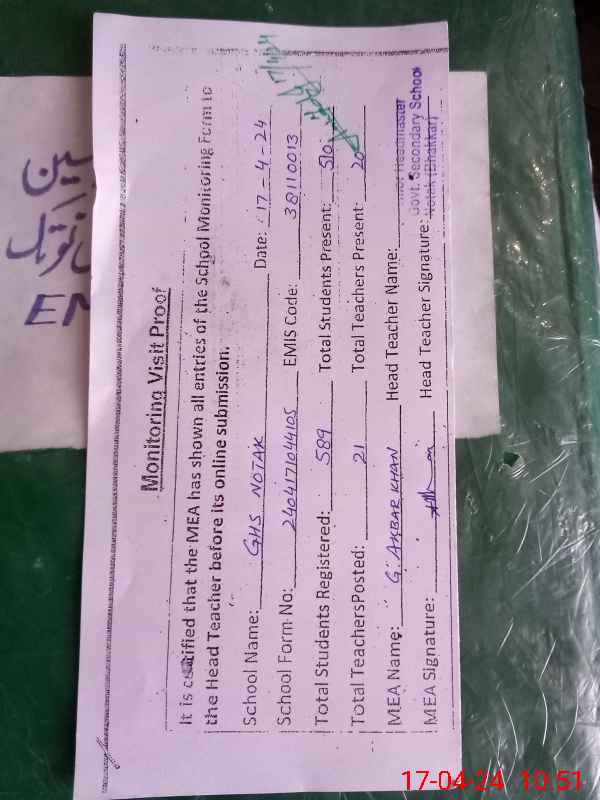 Monitoring Visit Proof
It is certified that the MEA has shown all entries of the School Monitoring Form to
the Head Teacher before its online submission.
School Name: GHS NOTAK Date: 17-4-24
School Form No: 2404171044105 EMIS Code: 38110013
Total Students Registered: 589 Total Students Present: 510
Total Teachers Posted: 21 Total Teachers Present: 20
MEA Name: G. AKBAR KHAN Head Teacher Name:
MEA Signature: Head Teacher Signature:
Headmaster
Govt. Secondary School
Notak (Bhakkar)
17/4/24
نوتک
17-04-24 10:51